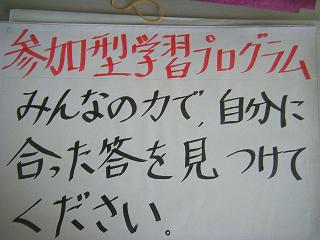 参加型学習プログラム
みんなの力で、自分に
合った答を見つけて
ください。